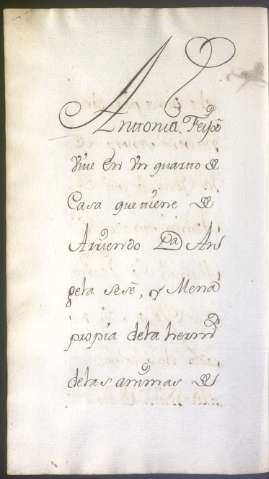 Antonia Feijoo
Vive en Vn quarto de
Casa que tiene de
Arriendo Da An
gela sese, y Mena
propia dela hermd
delas animas de